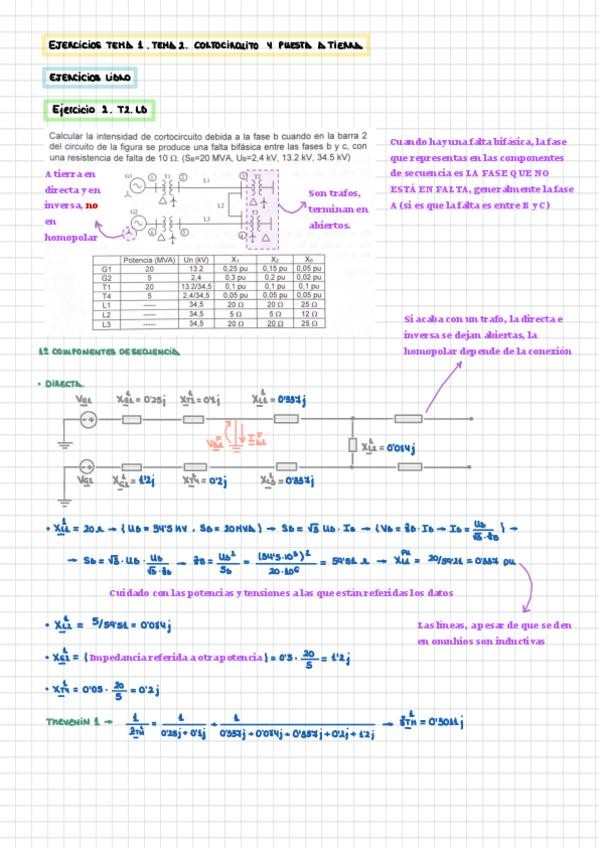 EJERCICIOS TEMA 1. TEMA 2. CORTOCIRCUITO Y PUESTA A TIERRA
EJERCICIOS LIBRO
Ejercicio 2. T2. Lb
Calcular la intensidad de cortocircuito debida a la fase b cuando en la barra 2
del circuito de la figura se produce una falta bifásica entre las fases b y c, con
una resistencia de falta de 10 Ω. (SB=20 MVA, UB=2,4 kV, 13.2 kV, 34.5 kV)
Cuando hay una falta bifásica, la fase
que representas en las componentes
de secuencia es LA FASE QUE NO
ESTÁ EN FALTA, generalmente la fase
A (si es que la falta es entre B y C)
A tierra en
directa y en
inversa, no
en
homopolar
G1 T1 L1
L2
G2 L3
Son trafos,
terminan en
abiertos.
Potencia (MVA) Un (kV) X1 X2 X0
G1 20 13.2 0,25 pu 0,15 pu 0,05 pu
G2 5 2,4 0,3 pu 0,2 pu 0,02 pu
T1 20 13.2/34,5 0,1 pu 0,1 pu 0,1 pu
T4 5 2,4/34,5 0,05 pu 0,05 pu 0,05 pu
L1 ----- 34,5 20 Ω 20 Ω 25 Ω
L2 ----- 34,5 5 Ω 5 Ω 12 Ω
L3 ----- 34,5 20 Ω 20 Ω 25 Ω
Si acaba con un trafo, la directa e
inversa se dejan abiertas, la
homopolar depende de la conexión
1º COMPONENTES DE SECUENCIA
• DIRECTA
= 0'25j = 0'1j = 0'337j
= 0'084j
= 1'2j = 0'2j = 0'337j
= 20 Ω → {UB = 34'5 kV, SB = 20 MVA} → SB = √3 · UB · IB →
→ SB = √3 · UB · → = = = 59'51 Ω → = 20/59'51 = 0'337 pu
Cuidado con las potencias y tensiones a las que están referidas los datos
= 5/59'51 = 0'084j
Las líneas, a pesar de que se den
en omnhios son inductivas
= {Impedancia referida a otra potencia} = 0'3 · 20/5 = 1'2j
= 0'05 · 20/5 = 0'2j
THEVENIN 1 → 1/ZTH = 1/(0'25j + 0'1j) + 1/(0'337j + 0'084j + 0'337j + 0'2j + 1'2j) → ZTH =